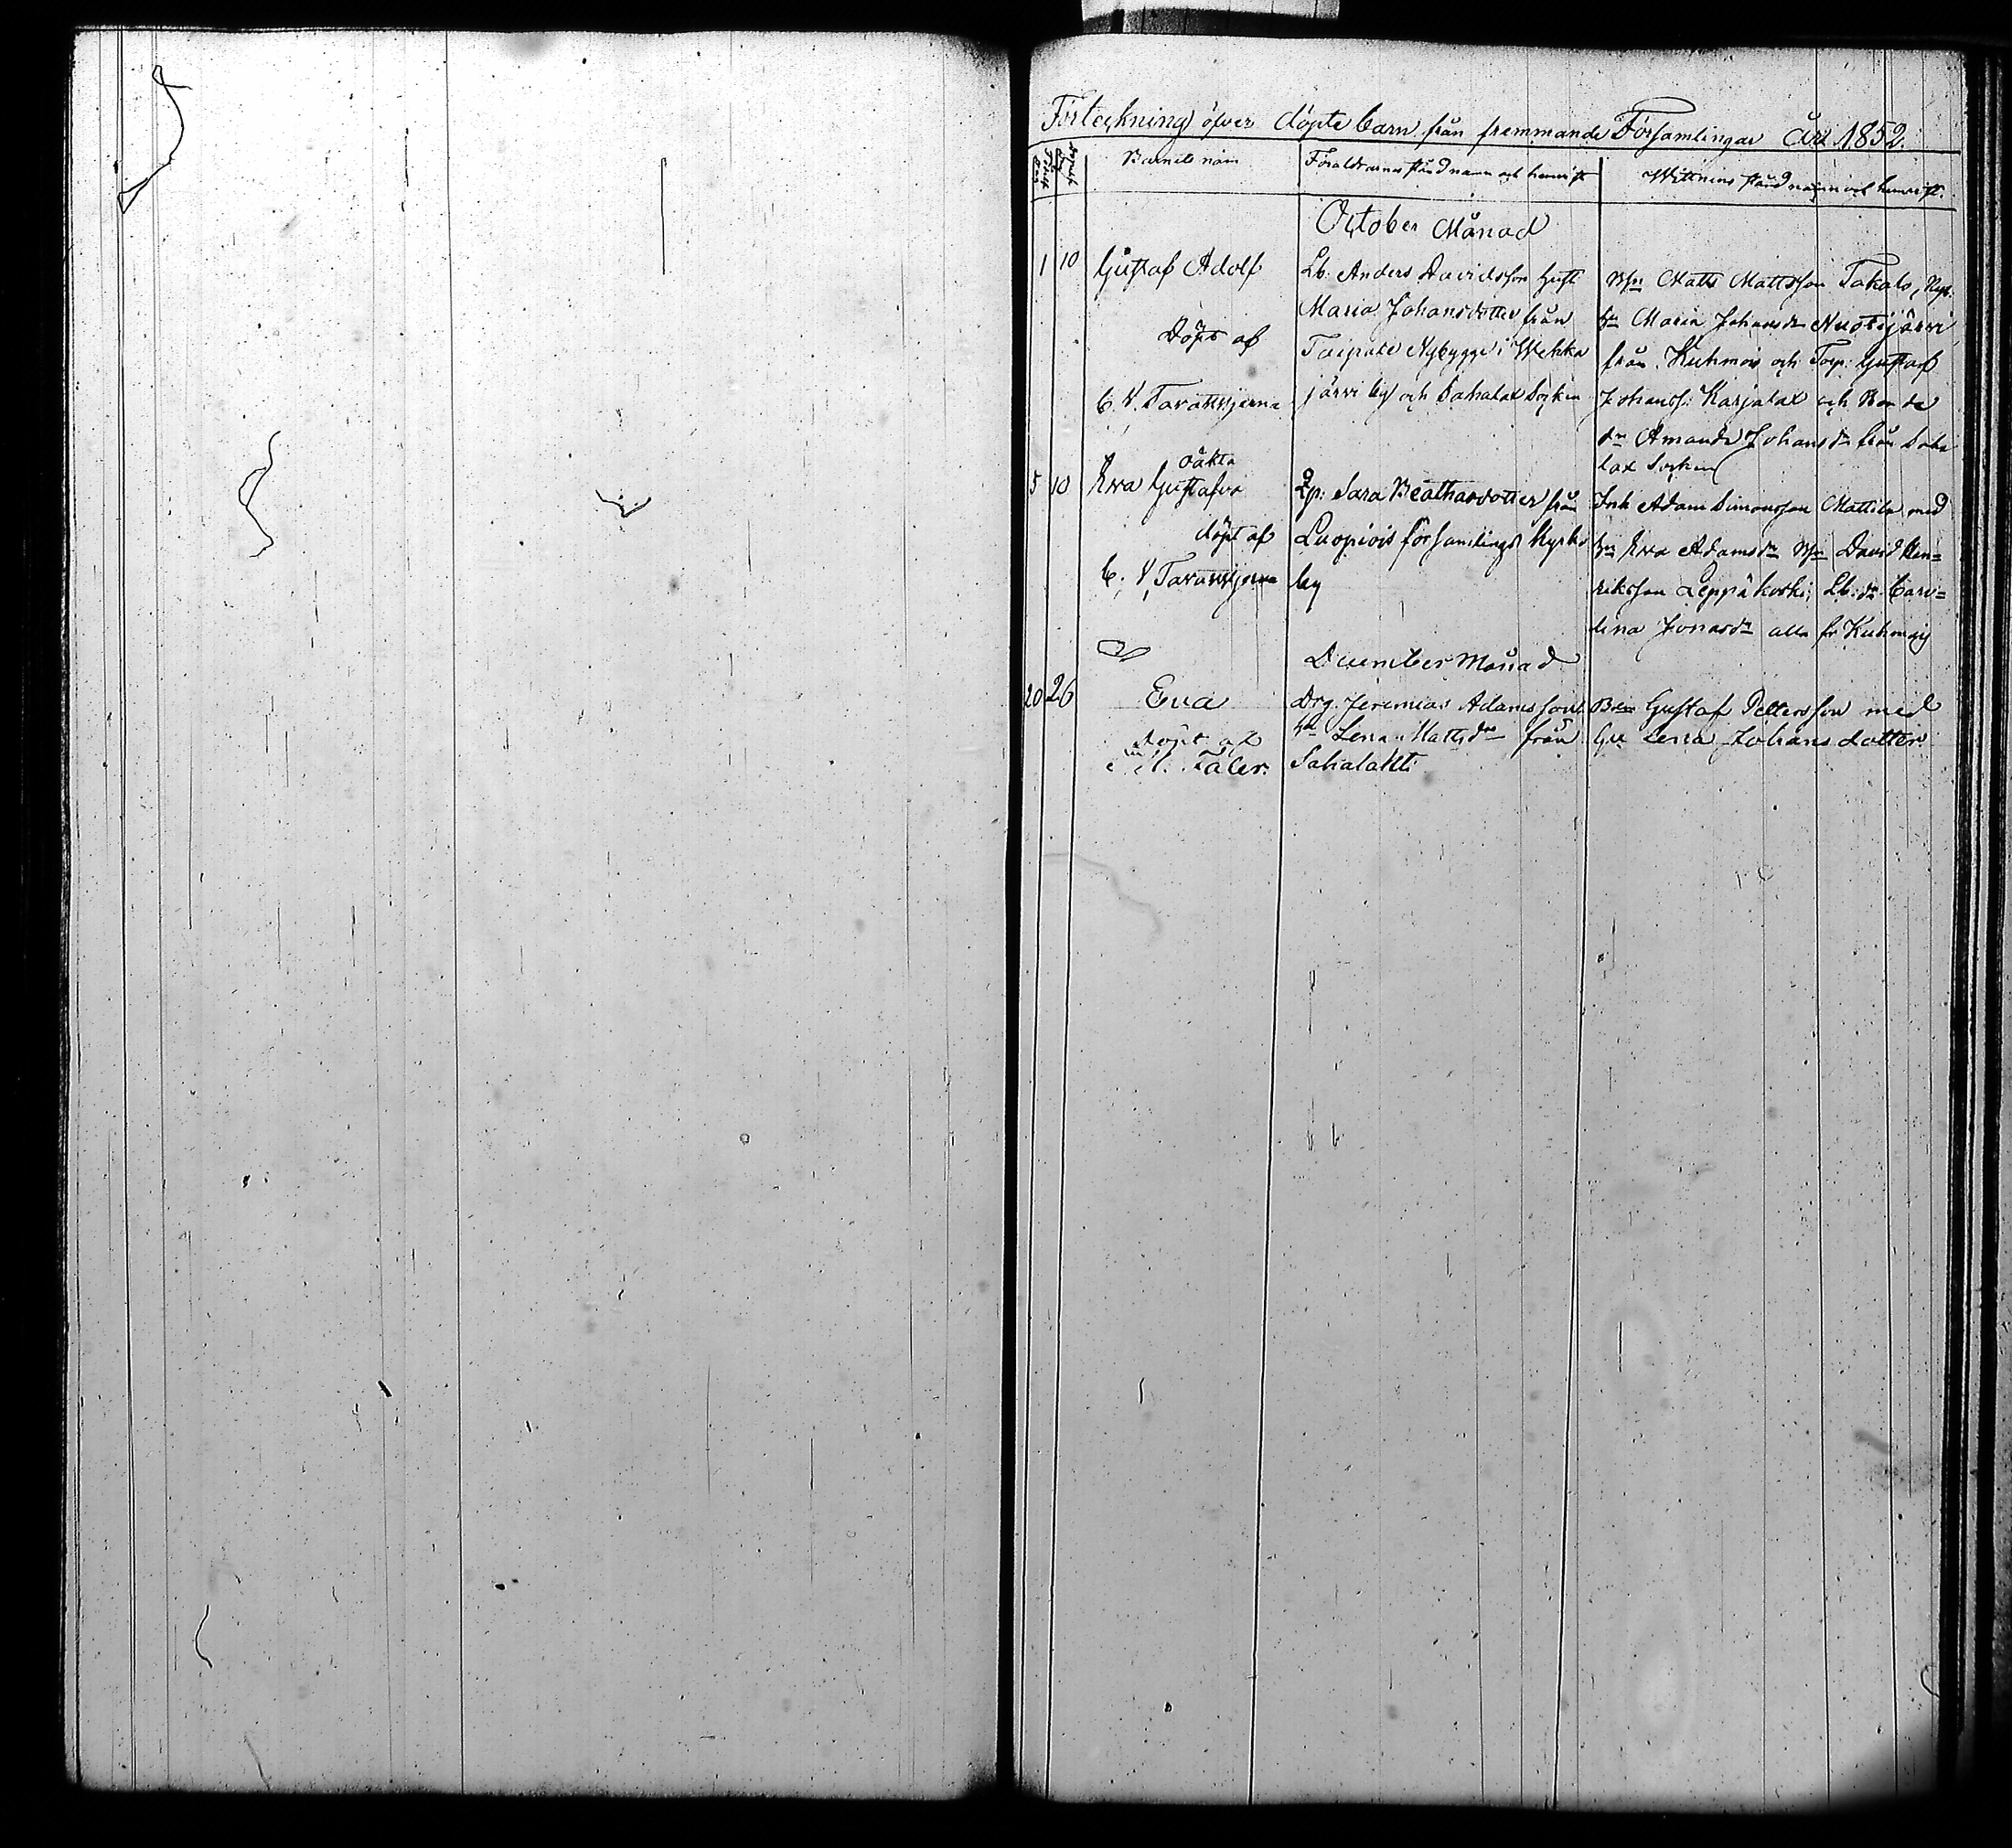 Förteckning öfver döpte barn från fremmande Församlingar År 1852.
Barnets nam
Föräldrarnes stånd namn och hemvist
Wittnens stånd namn och hemvist.
October Månad
1 10 Gustaf Adolf
Döpt af
C. V. Tavaststjerna
Lb. Anders Davidsson hust
Maria Johansdotter från
Taipale Nybygge i Wehka
järvi by och Sahalax Socken
Bn Matts Mattsson Takala,
hu Maria Johansdr Nuotijärvi
från Kuhmois och Torp. Gustaf
Johanss. Karjalax och Bonde
dr Amanda Johansdr från Saha
lax Socken
5 10 oäkta
Eva Gustafva
döpt af
C. V. Tavaststjerna
Qp. Sara Beathasdotter från
Luopiois församlings Kyrko
by
Inh Adam Simonsson Mattila med
hu Eva Adamsdr Bn David Hen=
riksson Leppäkoski, Lb. dr Caro=
lina Jonasdr alla fr Kuhmois
December Månad
20 26 Eva
döpt af
Faler.
Drg. Jeremias Adamsson
hu Lena Mattsdr från
Sahalahti
Bn Gustaf Pettersson med
hu Lena Johansdotter